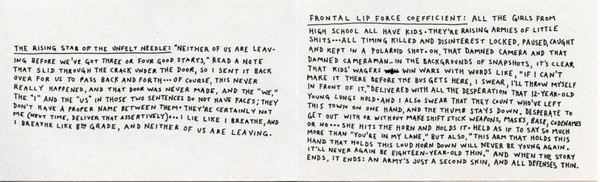 THE RISING STAR OF THE UNFELT NEEDLE: "NEITHER OF US ARE LEAV-
ING BEFORE WE'VE GOT THREE OR FOUR GOOD STARTS," READ A NOTE
THAT SLID THROUGH THE CRACK UNDER THE DOOR, SO I SENT IT BACK
OVER FOR US TO PASS BACK AND FORTH... OF COURSE, THIS NEVER
REALLY HAPPENED, AND THAT DOOR WAS NEVER MADE, AND THE "WE,"
THE "I" AND THE "US" IN THOSE TWO SENTENCES DO NOT HAVE FACES; THEY
DON'T HAVE A PROPER NAME BETWEEN THEM; THEY'RE CERTAINLY NOT
ME (NEXT TIME, DELIVER THAT ASSERTIVELY)... I LIE LIKE I BREATHE, AND
I BREATHE LIKE 8TH GRADE, AND NEITHER OF US ARE LEAVING.
FRONTAL LIP FORCE COEFFICIENT: ALL THE GIRLS FROM
HIGH SCHOOL ALL HAVE KIDS. THEY'RE RAISING ARMIES OF LITTLE
SHITS... ALL TIMING KILLED AND DISINTEREST LOCKED, PAUSED, CAUGHT
AND KEPT IN A POLAROID SHOT. OH, THAT DAMNED CAMERA AND THAT
DAMNED CAMERAMAN. IN THE BACKGROUNDS OF SNAPSHOTS, IT'S CLEAR
THAT KIDS' WAGERS WIN WARS WITH WORDS LIKE, "IF I CAN'T
MAKE IT THERE BEFORE THE BUS GETS HERE, I SWEAR, I'LL THROW MYSELF
IN FRONT OF IT," DELIVERED WITH ALL THE DESPERATION THAT 12-YEAR-OLD
YOUNG LUNGS HOLD. AND I ALSO SWEAR THAT THEY COUNT WHO'VE LEFT
THIS TOWN ON ONE HAND, AND THE THUMB STAYS DOWN, DESPERATE TO
GET OUT WITH OR WITHOUT MAKE SHIFT STICK WEAPONS, MASKS, BASE, CODENAMES
OR NO... SHE HITS THE HORN AND HOLDS IT. HELD AS IF TO SAY SO MUCH
MORE THAN "YOU'RE IN MY LANE," BUT ALSO, "THIS ARM THAT HOLDS THIS
HAND THAT HOLDS THIS LOUD HORN DOWN WILL NEVER BE YOUNG AGAIN.
IT'LL NEVER AGAIN BE EIGHTEEN-YEAR-OLD THIN." AND WHEN THE STORY
ENDS, IT ENDS: AN ARMY'S JUST A SECOND SKIN, AND ALL DEFENSES THIN.